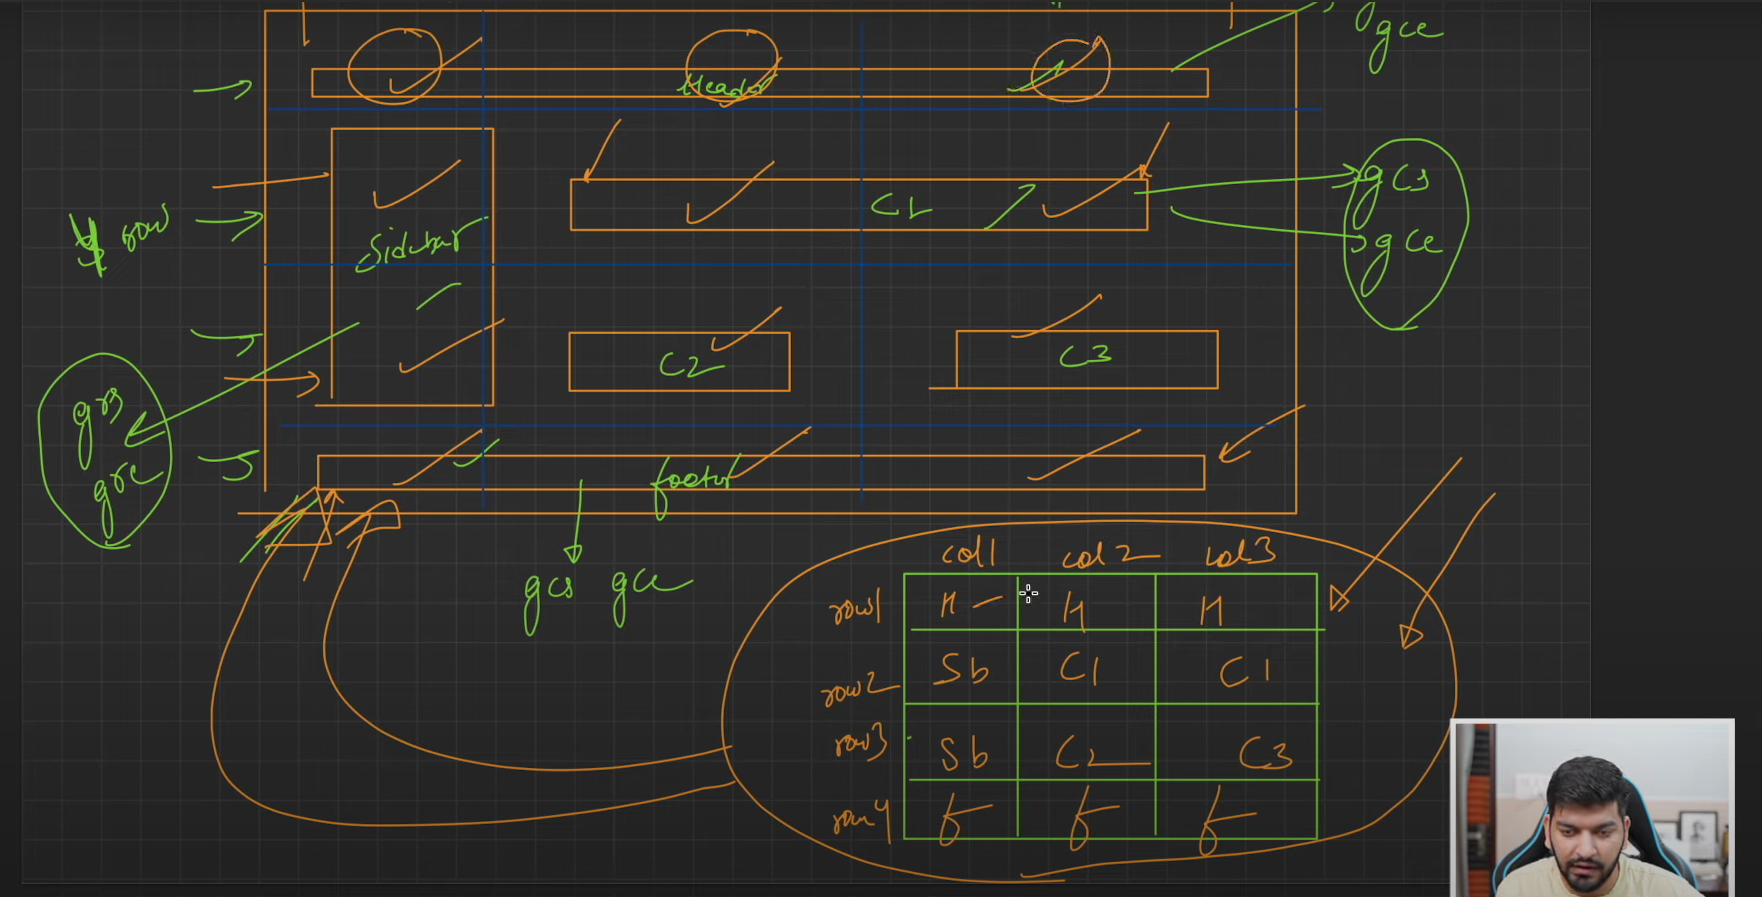 gce
Header
gcs
C1
row
Sidebar
gce
C2
C3
grs
gre
footer
gcs gce
col1 col2 col3
row1 H H H
row2 Sb C1 C1
row3 Sb C2 C3
row4 f f f